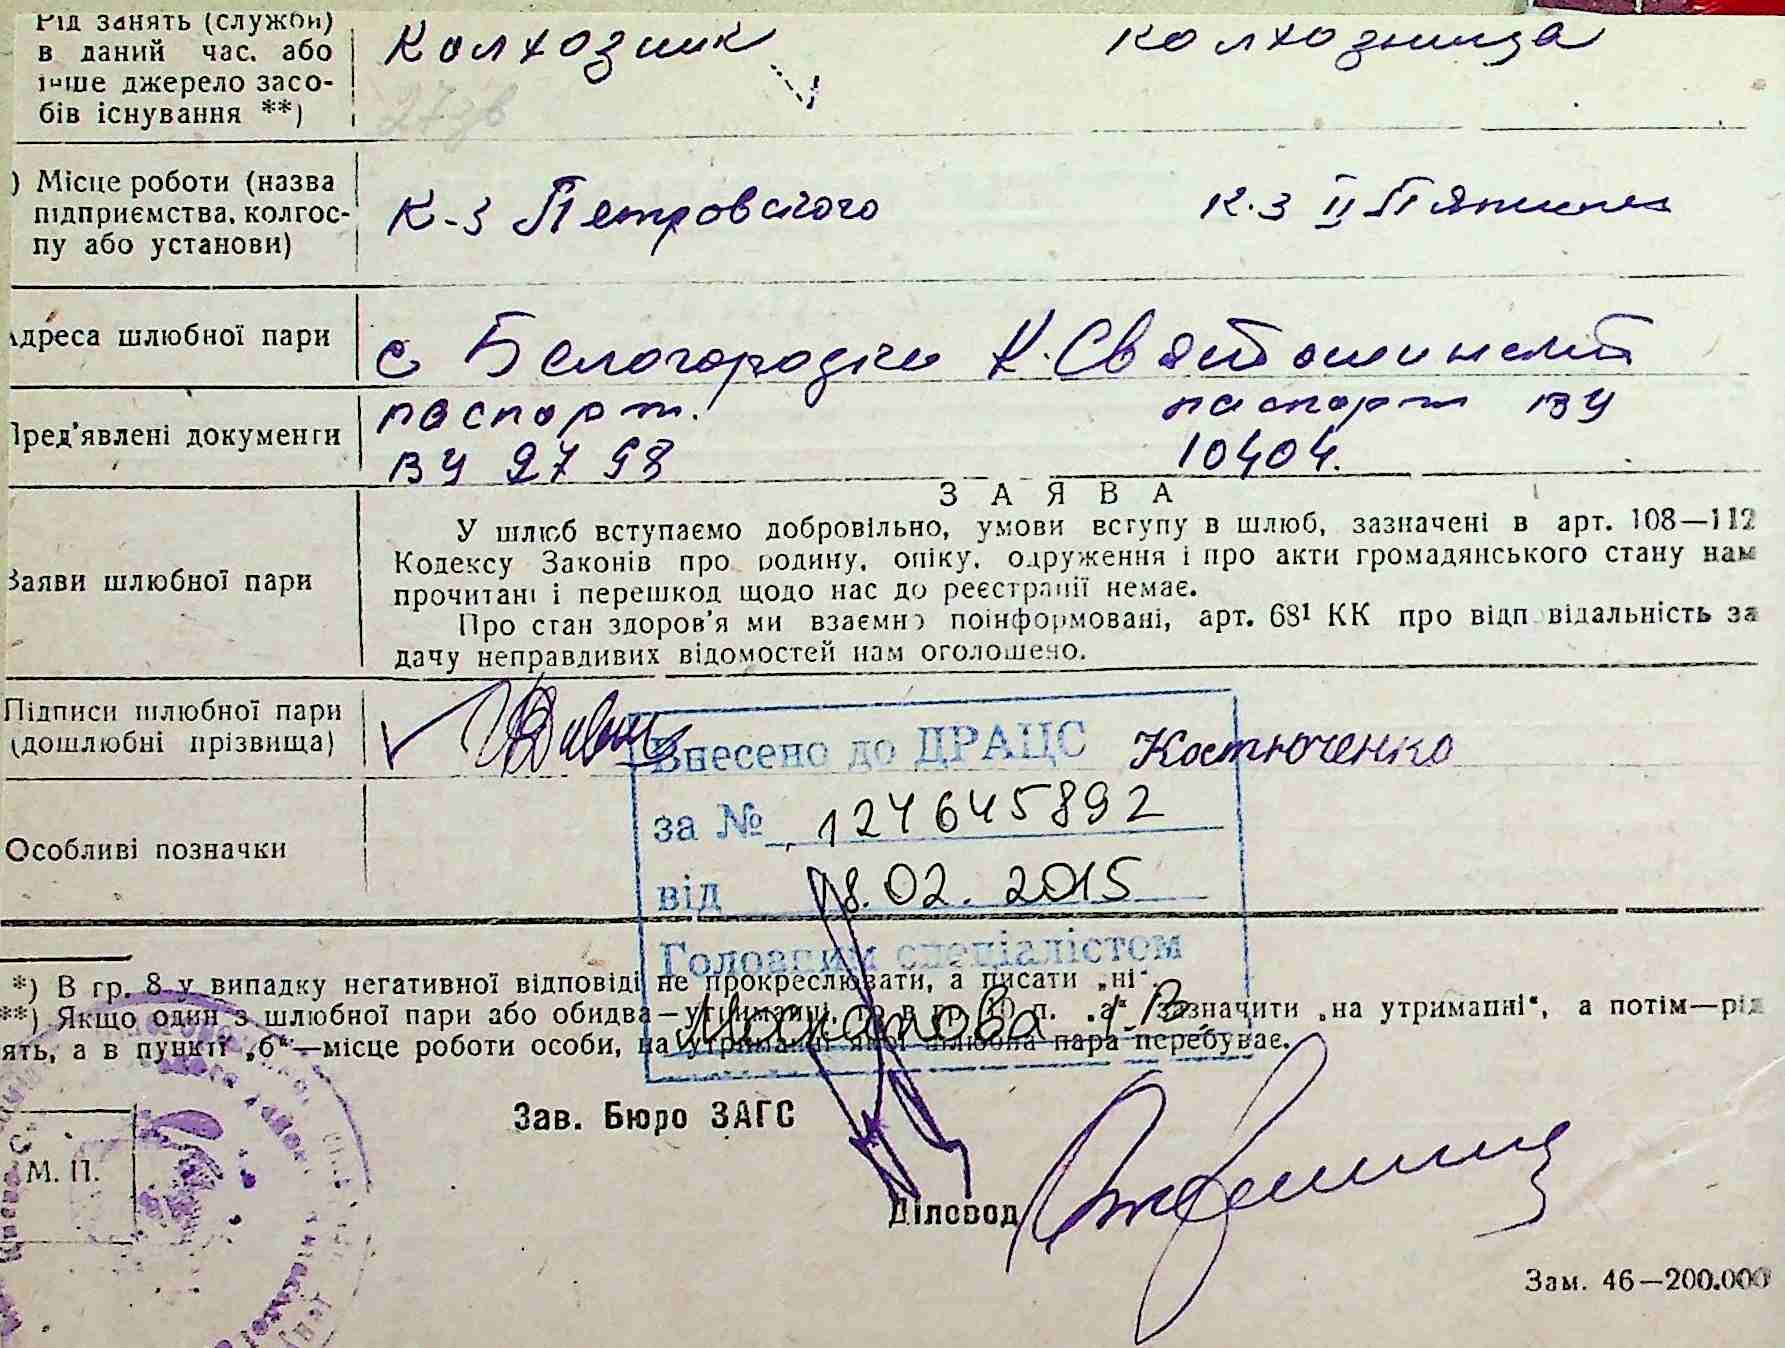 Рід занять (служби) Колхозник колхозница
в даний час. або
інше джерело засо-
бів існування **)
27зв
) Місце роботи (назва
підприємства, колгос-
пу або установи)
К-з Петровского К.з II Пятилет
Адреса шлюбної пари
с Белогородка К.Святошинский
Пред'явлені документи
паспорт. паспорт ВЧ
ВЧ 2798 10404.
ЗАЯВА
Заяви шлюбної пари
У шлюб вступаємо добровільно, умови вступу в шлюб, зазначені в арт. 108—112
Кодексу Законів про родину, опіку, одруження і про акти громадянського стану нам
прочитані і перешкод щодо нас до реєстрації немає.
Про стан здоров'я ми взаємно поінформовані, арт. 68¹ КК про відповідальність за
дачу неправдивих відомостей нам оголошено.
Підписи шлюбної пари
(дошлюбні прізвища)
Костюченко
Внесено до ДРАЦС
за № 124645892
Особливі позначки
від 18.02.2015
Головним спеціалістом
*) В гр. 8 у випадку негативної відповіді не прокреслювати, а писати „ні“.
**) Якщо один з шлюбної пари або обидва—утриманці, то в гр. 10 п. „а“ зазначити „на утриманні“, а потім—рід
ять, а в пункті „б“—місце роботи особи, на утриманні якої шлюбна пара перебуває.
Зав. Бюро ЗАГС
М. П.
Діловод
Зам. 46—200.000